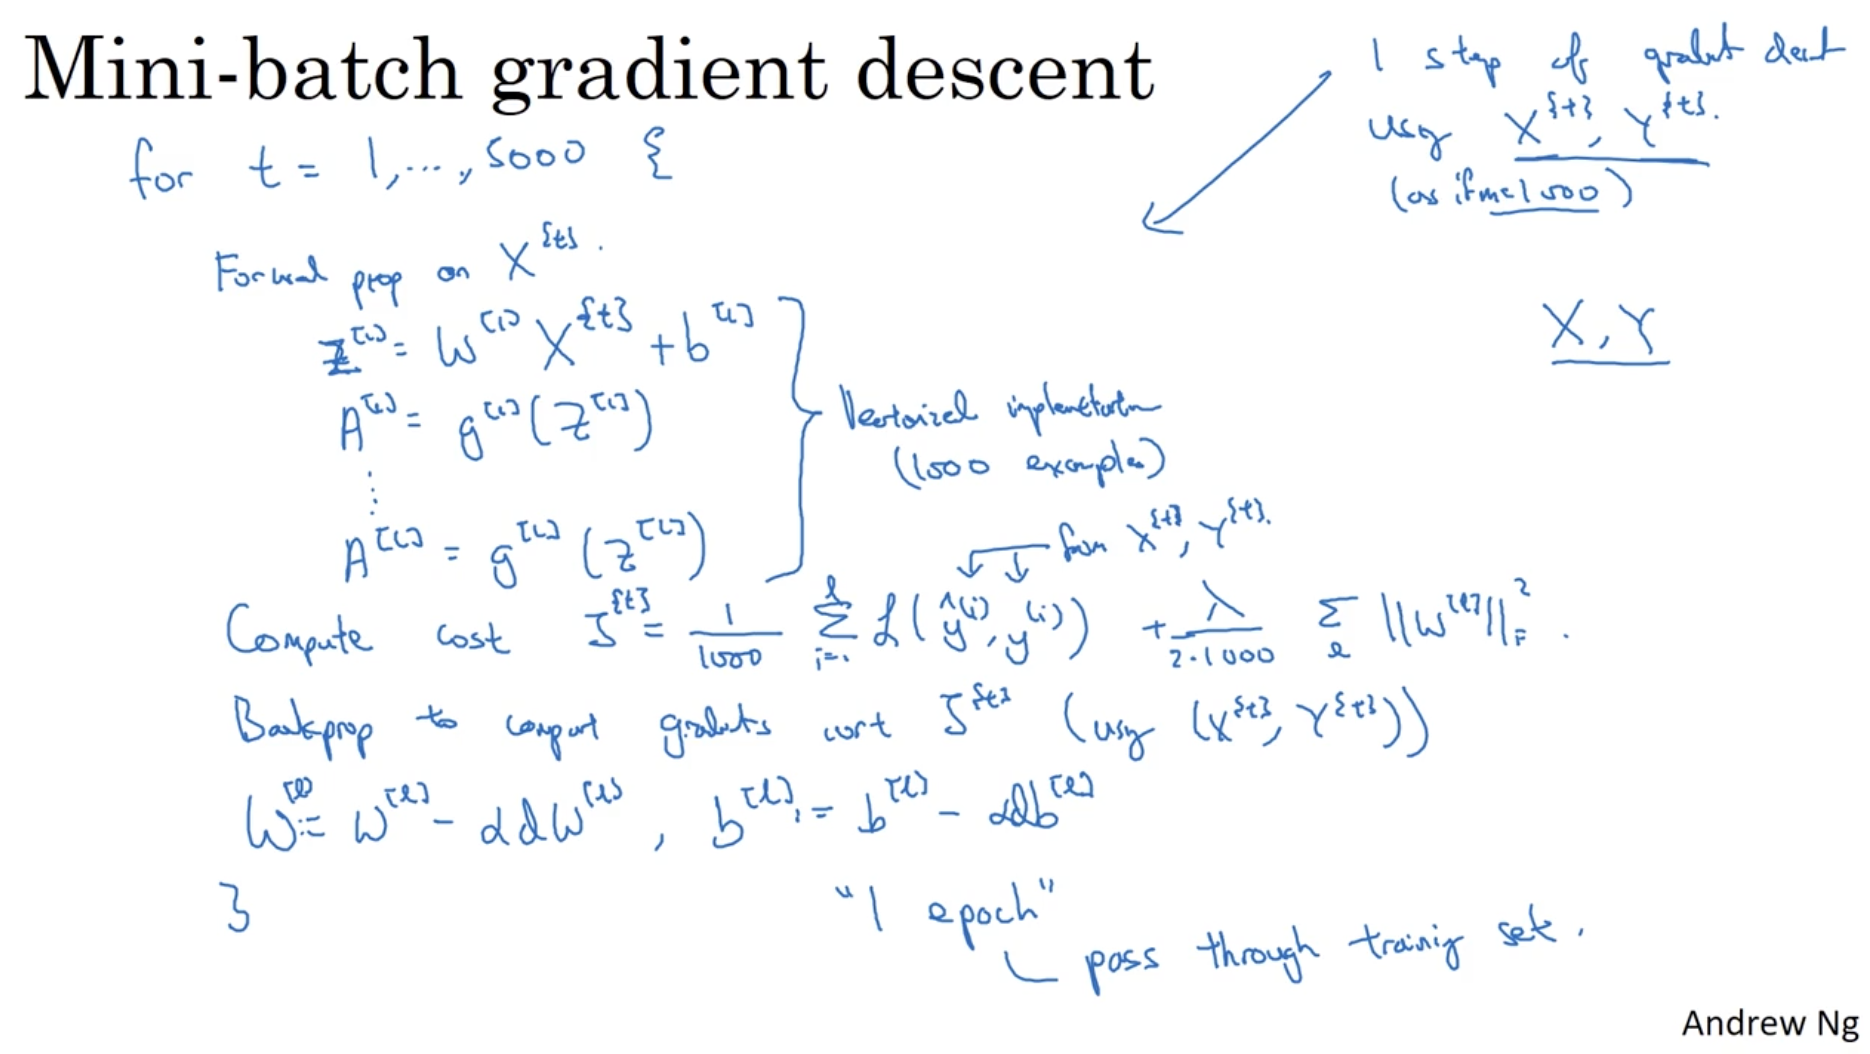 Mini-batch gradient descent
1 step of gradient descent
using X^{t}, Y^{t}.
(as if m=1000)
for t = 1,..., 5000 {
Forward prop on X^{t}.
Z^[1] = W^[1] X^{t} + b^[1]
A^[1] = g^[1](Z^[1])
⋮
A^[L] = g^[L](Z^[L])
Vectorized implementation
(1000 examples)
X, Y
from X^{t}, Y^{t}.
Compute cost J^{t} = 1/1000 Σ_{i=1}^{l} L(ŷ^(i), y^(i)) + λ/(2·1000) Σ_l ||W^[l]||_F^2.
Backprop to compute gradients wrt J^{t} (using (X^{t}, Y^{t}))
W^[l] := W^[l] - αdW^[l], b^[l] := b^[l] - αdb^[l]
}
"1 epoch"
pass through training set.
Andrew Ng